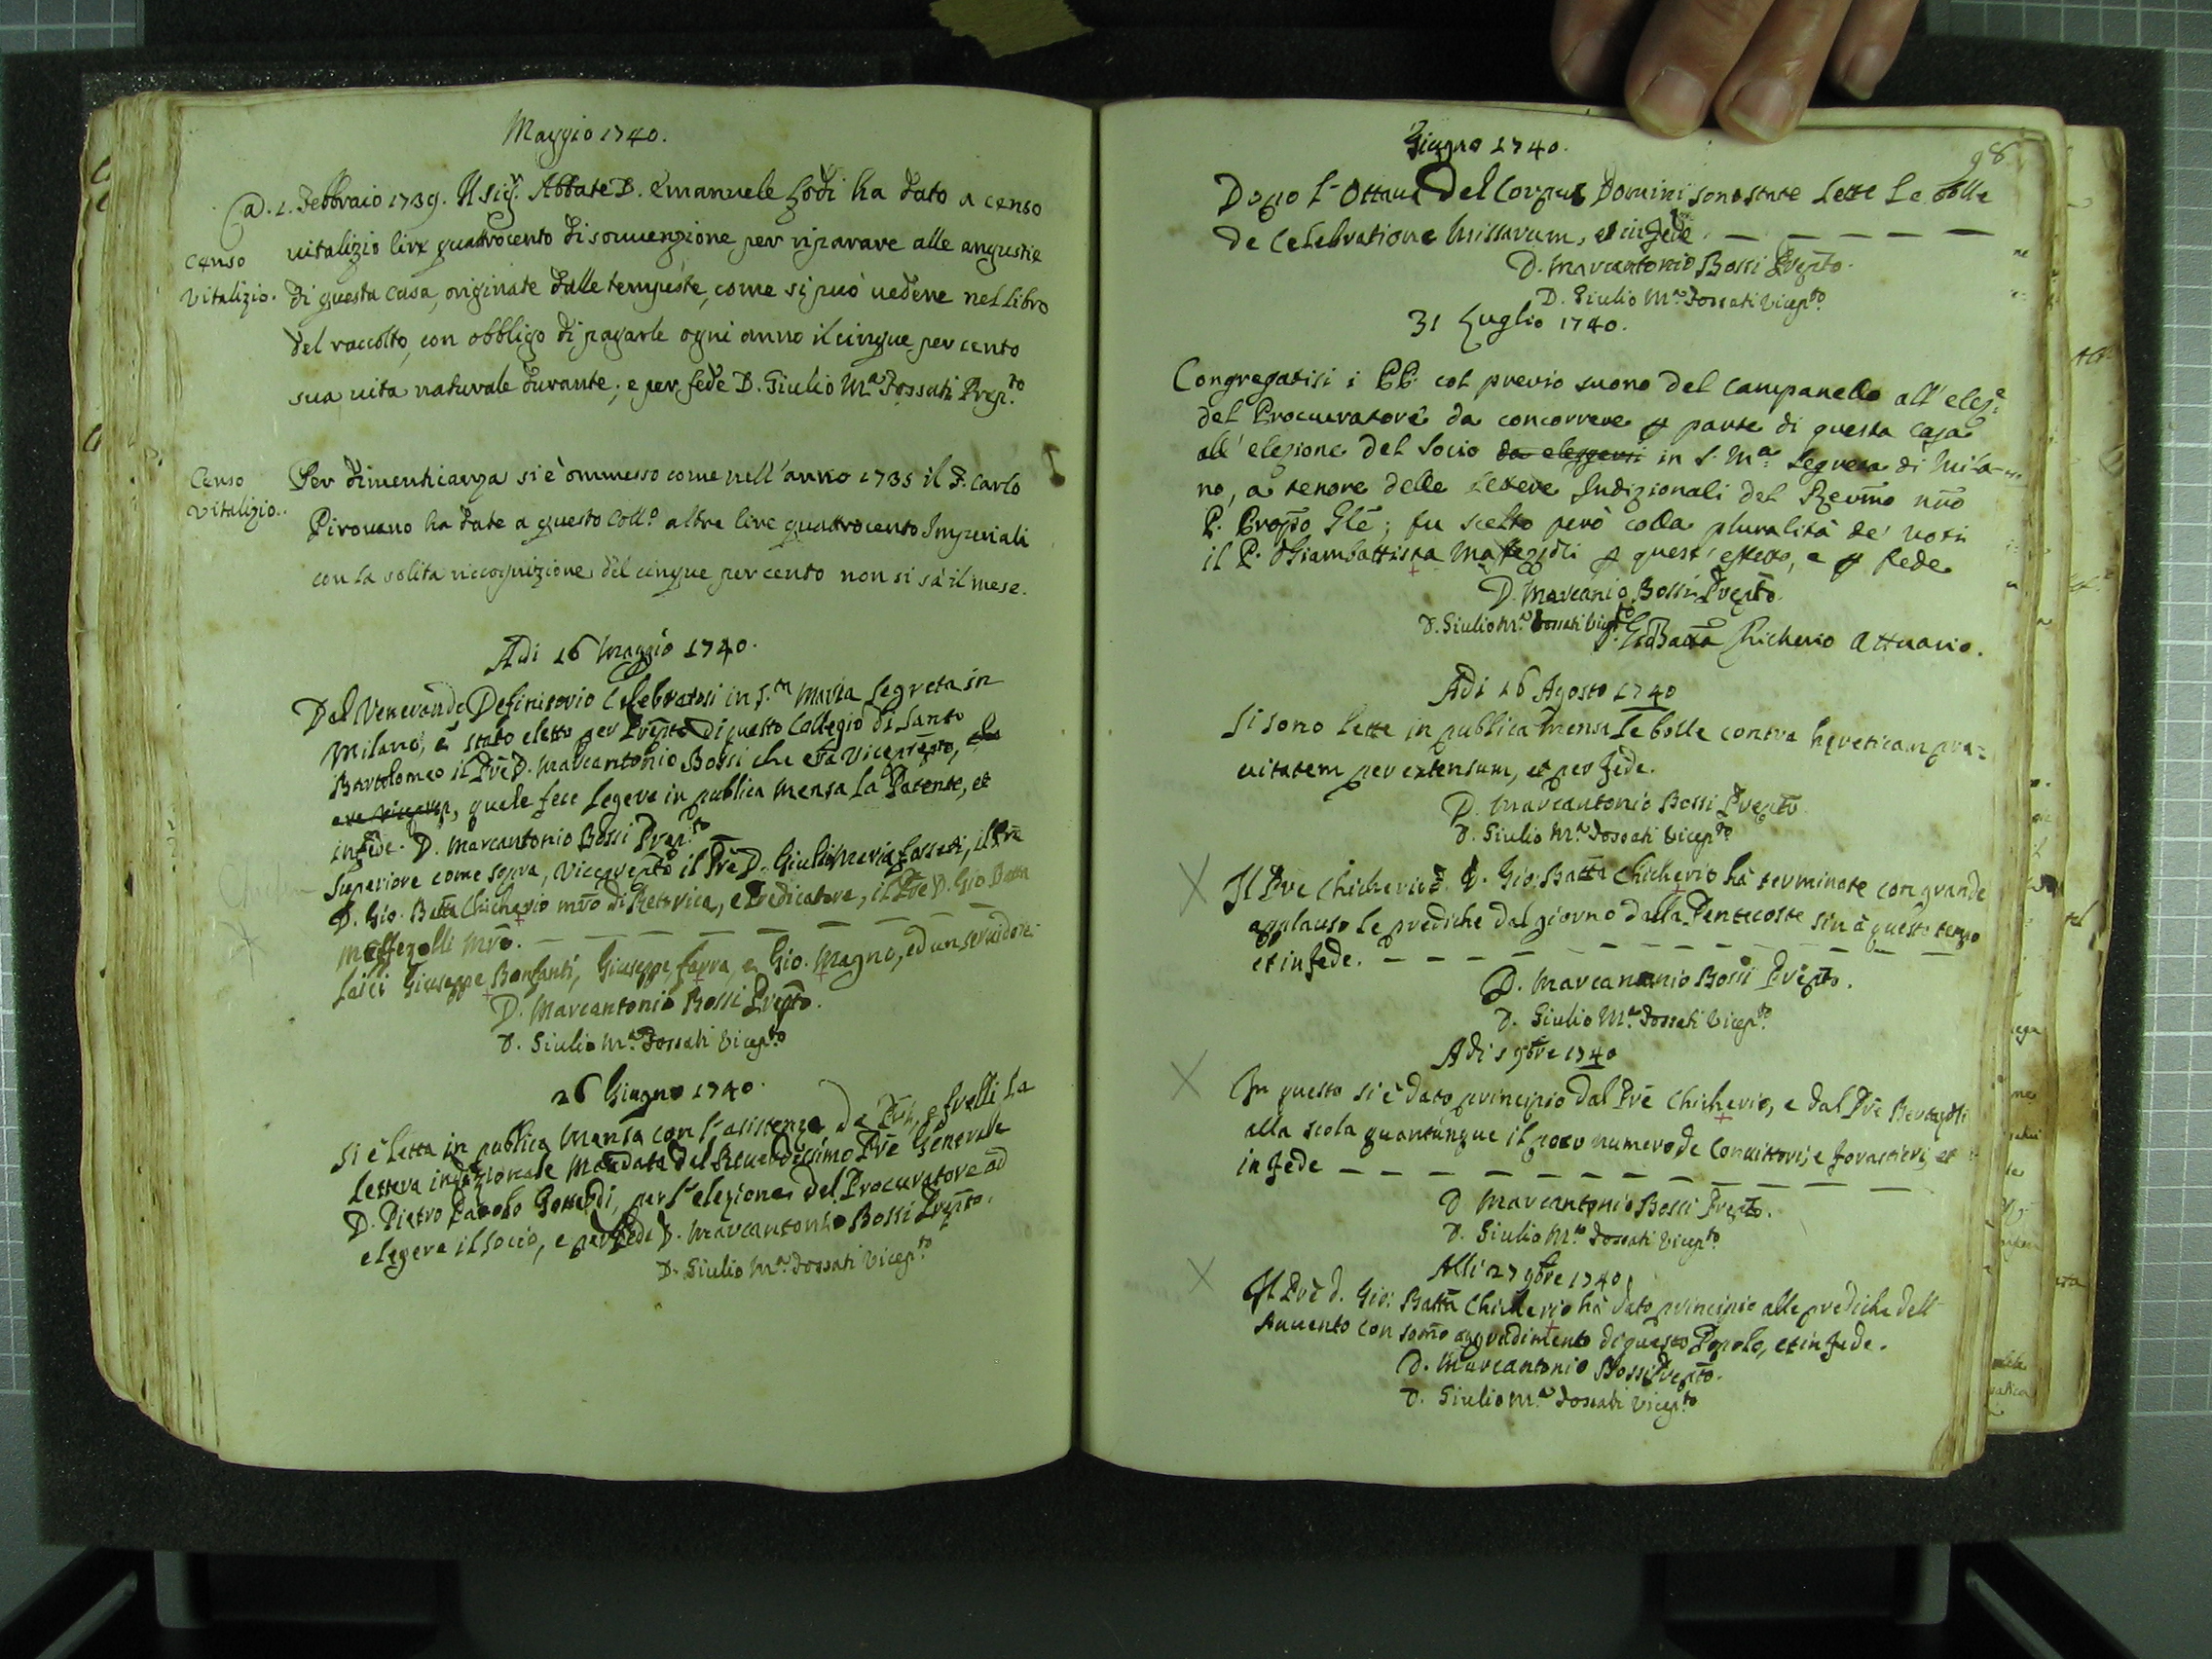 Maggio 1740.
A di 1. Febbraio 1739. Il Sig.r Abbate D. Emanuele Lodi ha dato a censo
Censo
Vitalizio.
vitalizio lire quattrocento di souuenzione per riparare alle angustie
di questa casa, originate dalle tempeste, come si può uedere nel libro
del raccolto, con obbligo di pagarle ogni anno il cinque per cento
sua uita naturale durante; e per fede D. Giulio M.a Fossati Prep.to
Censo
Vitalizio.
Per dimenticanza si è ommesso come nell'anno 1735 il F. Carlo
Pirouano ha date a questo Coll.o altre lire quattrocento Imperiali
con la solita ricognizione del cinque per cento non si sà il mese.
Adi 16 Maggio 1740.
Dal Venerando Definitorio Celebratosi in S.ta Maria Segreta in
Milano, è stato eletto per Prepto di questo Collegio di Santo
Bartolomeo il Pre D. Marcantonio Bossi che era Viceprepto,
quale fece legere in publica Mensa la Patente, et
in fede. D. Marcantonio Bossi Prep.to
Superiore come sopra, Viceprepto il Pre D. Giulio Maria Fossati, il Pre
D. Gio. Batta Chicherio mro di Retorica, e Predicatore, il Pre D. Gio Batta
Maffezolli Mro.
Laici Giuseppe Bonfanti, Giuseppe Farra, e Gio. Magno, ed un seruidore.
D. Marcantonio Bossi Prepto.
D. Giulio M.a Fossati Vicep.to
26 Giugno 1740.
Si è letta in publica Mensa con l'assistenza de Pri, e frelli la
lettera indizionale Mandata dal Reuerdissimo Pre Generale
D. Pietro Paoolo Gottardi, per l'elezione del Procuratore ad
elegere il socio, e per fede D. Marcantonio Bossi Prepto.
D. Giulio M.a Fossati Vicep.to
98
Giugno 1740.
Dopo l'Ottaua Del Corpus Domini sono state lette le bolle
de Celebratione Missarum, et in fede
D. Marcantonio Bossi Prepto.
D. Giulio M.a Fossati Vicep.to
31 Luglio 1740.
Congregatisi i PP. col previo suono del campanello all'elez.e
del Procuratore da concorrere p parte di questa Casa
all'elezione del Socio da eleggersi in S. M.a Segreta di Mila-
no, a tenore delle lettere Indizionali del Revmo nro
P. Propto Gle; fu scelto però colla pluralità de' voti
il P. Giambattista Maffezolli p quest'effetto, e p fede
D. Marcanio Bossi Prepto.
D. Giulio M.a Fossati Vicep.to
D. Gio Batta Chicherio Attuario.
Adi 16 Agosto 1740
Si sono lette in publica Mensa le bolle contra hereticam pra-
uitatem per extensum, et per fede.
D. Marcantonio Bossi Prepto.
D. Giulio M.a Fossati Vicep.to
Il Pre Chicherio D. Gio: Batta Chicherio hà terminate con grande
applauso le prediche dal giorno dalla Pentecoste sin à questo tempo
et in fede.
D. Marcantonio Bossi Prepto.
D. Giulio M.a Fossati Vicep.to
Adi 5 9bre 1740
In questo si è dato principio dal Pre Chicherio, e dal Pre
alla scola quantunque il poco numero de Conuittori, e forastieri, et
in fede
D Marcantonio Bossi Prepto.
D. Giulio M.a Fossati Vicep.to
Alli 27 9bre 1740
Il Pre D. Gio: Batta Chicherio hà dato principio alle prediche dell'
Auuento con somo aggradimento di questo Popolo, et in fede.
D. Marcantonio Bossi Prepto.
D. Giulio M.a Fossati Vicep.to